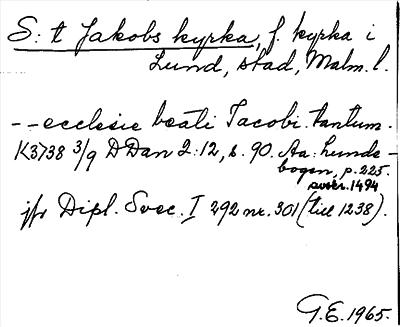 S:t Jakobs kyrka, f. kyrka i
Lund, stad, Malm. l.
-- ecclesie beati Jacobi tantum.
K3738 3/9 DDan 2:12, s. 90. Aa: Lunde-
bogen, p. 225.
svskr. 1494
jfr Dipl. Svec. I 292 nr. 301 (till 1238).
G.E. 1965.